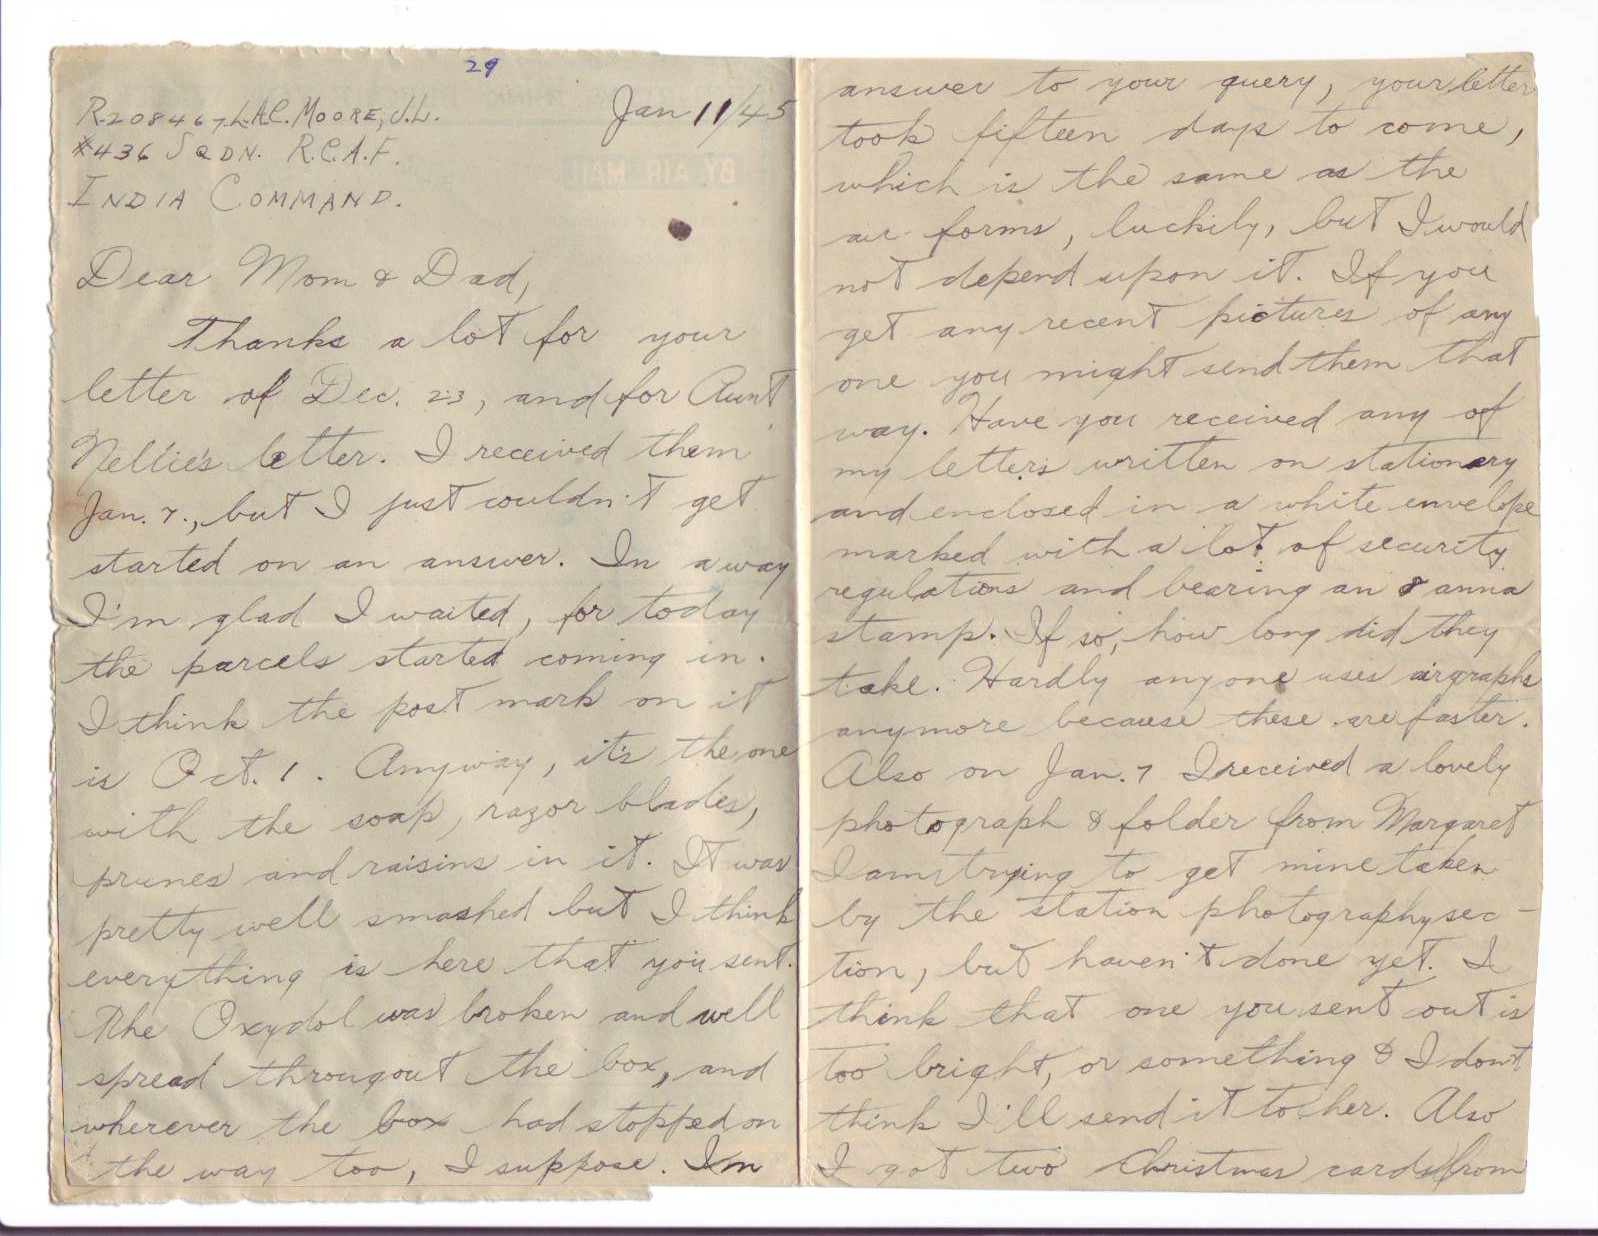 29
R208467 L.A.C. MOORE, J.L.
Jan 11/45
#436 SQDN. R.C.A.F.
INDIA COMMAND.
BY AIR MAIL
Dear Mom & Dad,
Thanks a lot for your
letter of Dec. 23, and for Aunt
Nellie's letter. I received them
Jan. 7., but I just couldn't get
started on an answer. In a way
I'm glad I waited, for today
the parcels started coming in.
I think the post mark on it
is Oct. 1. Anyway, it's the one
with the soap, razor blades,
prunes and raisins in it. It was
pretty well smashed but I think
everything is here that you sent.
The Oxydol was broken and well
spread througout the box, and
wherever the box had stopped on
the way too, I suppose. In
answer to your query, your letter
took fifteen days to come,
which is the same as the
air forms, luckily, but I would
not depend upon it. If you
get any recent pictures of any
one you might send them that
way. Have you received any of
my letters written on stationary
and enclosed in a white envelope
marked with a lot of security
regulations and bearing an 8 anna
stamp. If so, how long did they
take. Hardly anyone uses airgraphs
anymore because these are faster.
Also on Jan. 7 I received a lovely
photograph & folder from Margaret
I am trying to get mine taken
by the station photography sec-
tion, but haven't done yet. I
think that one you sent out is
too bright, or something & I don't
think I'll send it to her. Also
I got two Christmas cards from